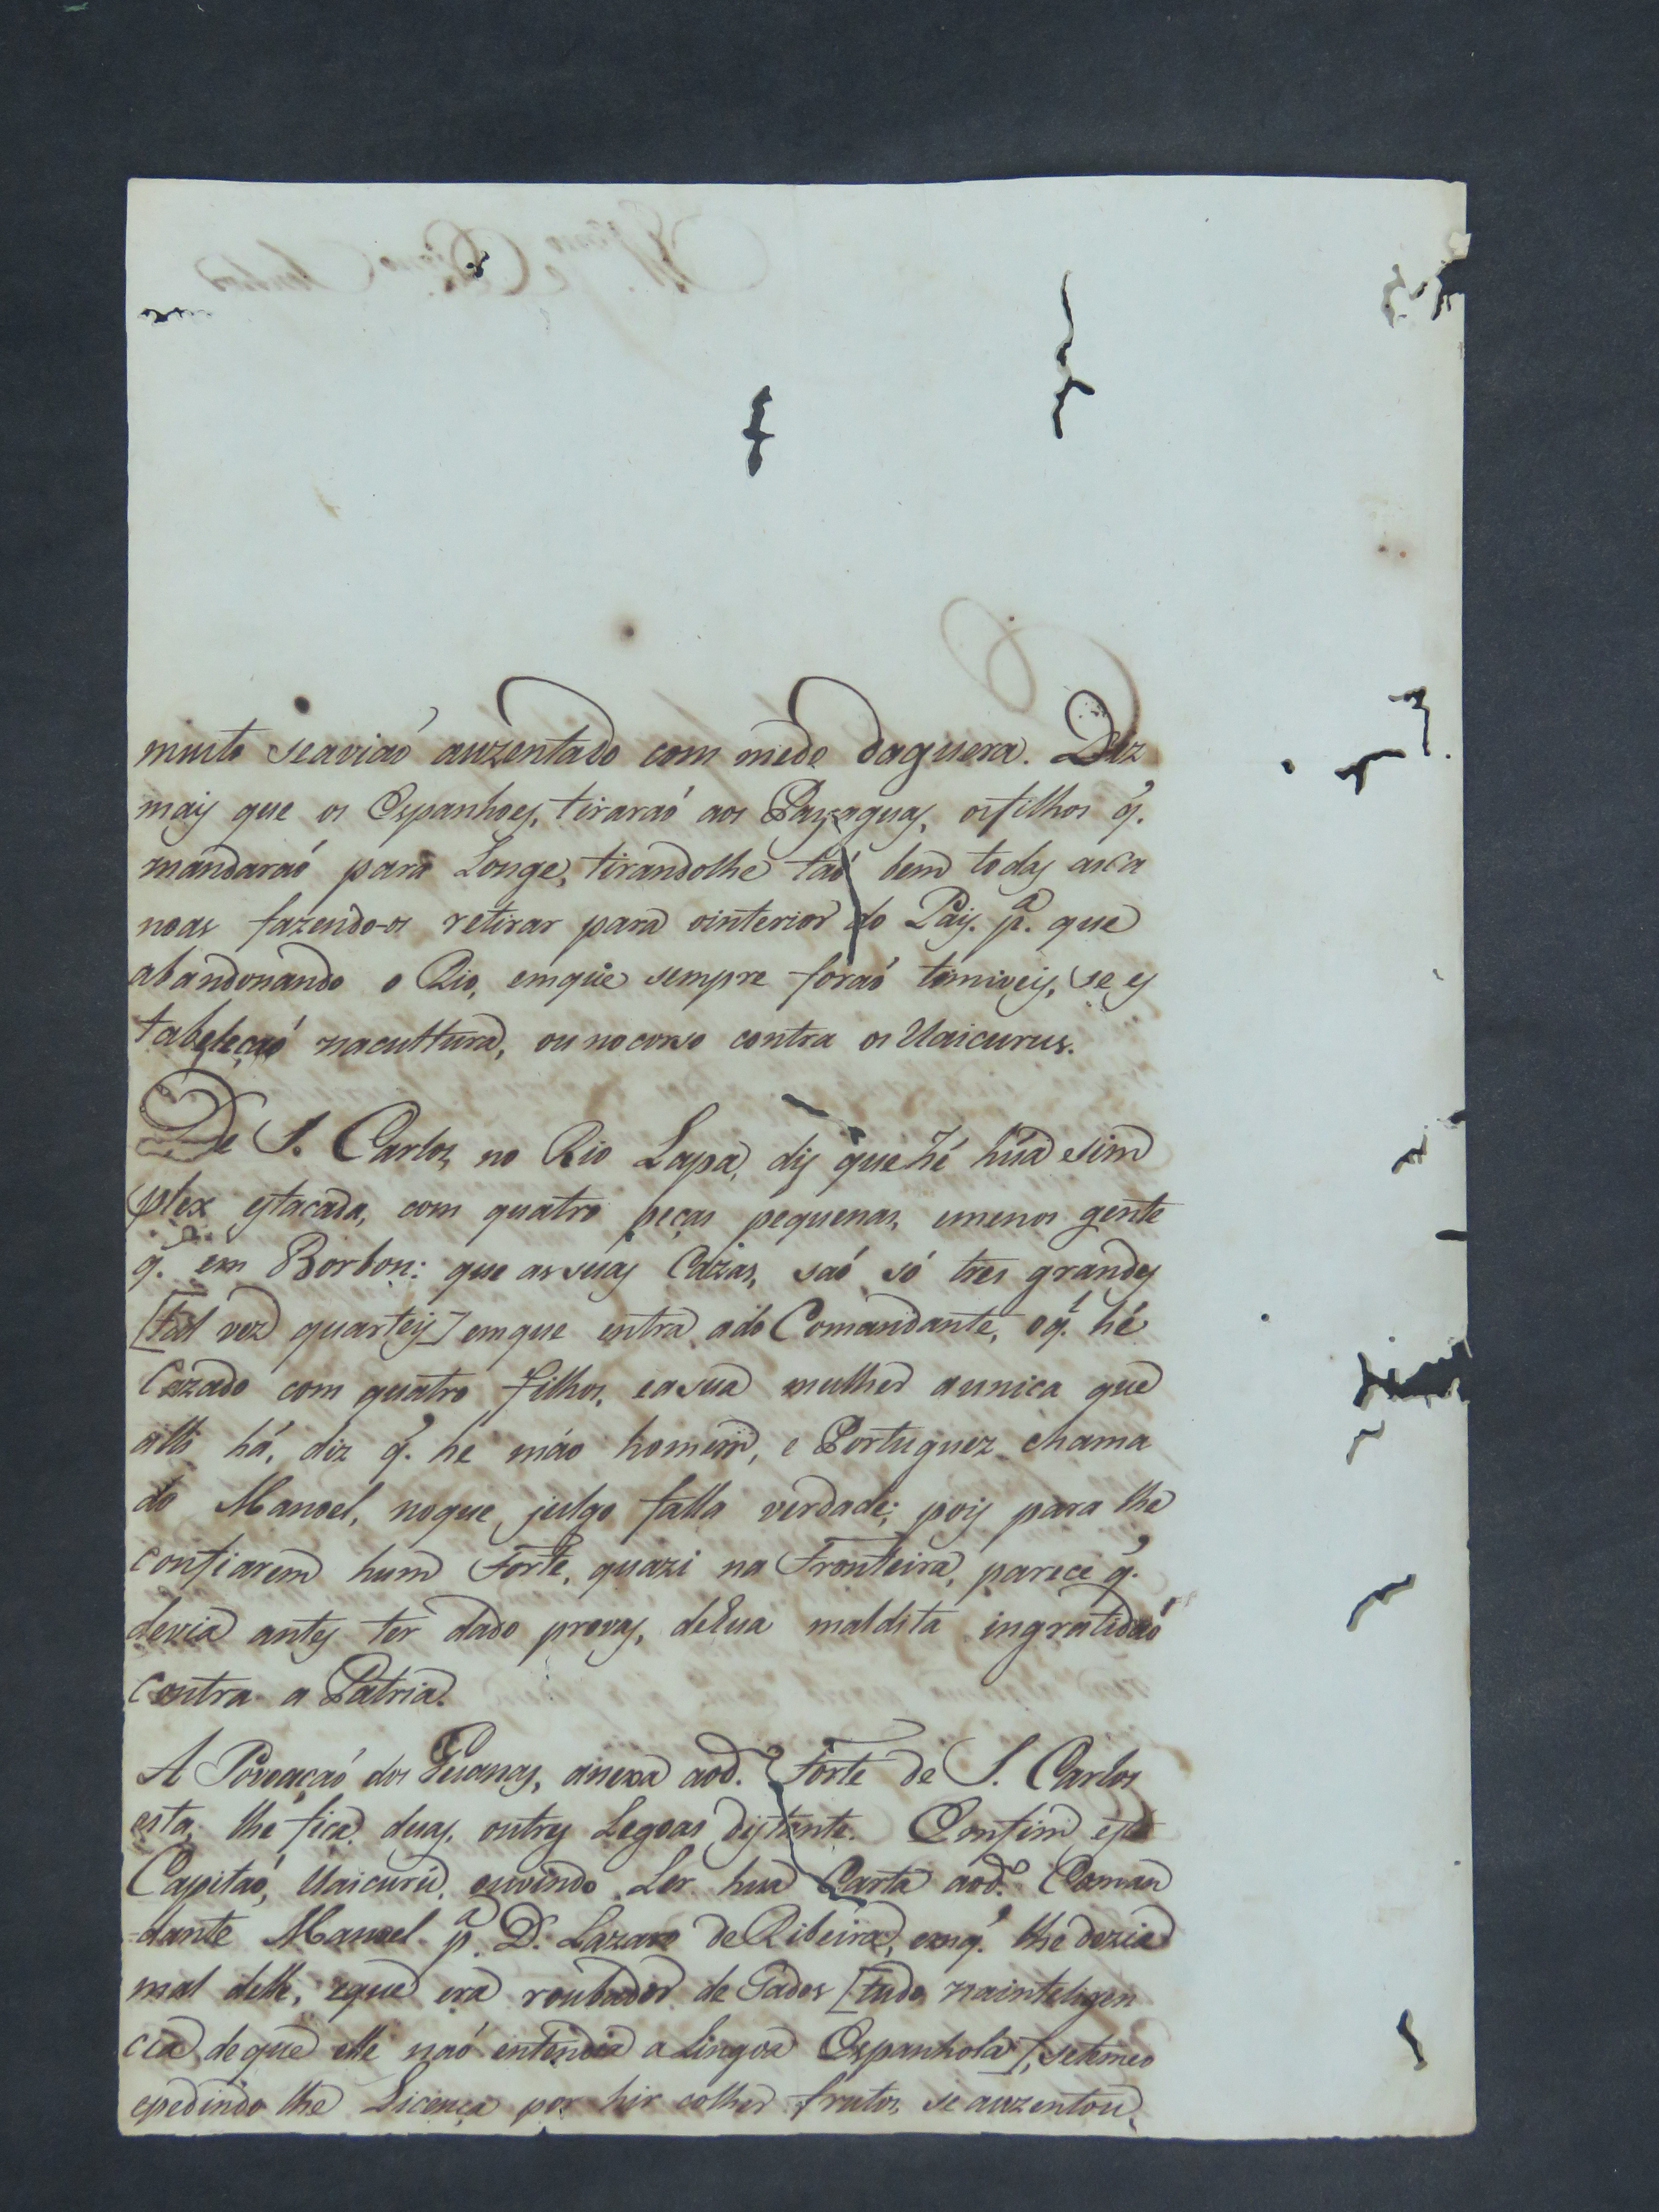 muito seaviaó auzentado com medo daguera. Diz
mais que os Espanhoes, tiraraó aos Payaguas, osfilhos q̃.
mandaraó para Longe, tirandolhe taó bem todas asca
noas fazendo-os retirar para ointerior do Pais. p.ª que
abandonando o Rio, emque sempre foraó temiveis, se es
tabeleçaó nacultura, ou nocorso contra os Uaicurus.
De S. Carlos, no Rio Lapa, dis que hé húa sim
plex estacada, com quatro peças pequenas, emenos gente
q̃. em Borbon: que assuas Cazas, saó só tres grandes
[tal vez quarteis] emque entra ado Comandante, oq̃. hé
Cazado com quatro filhos, easua mulher aunica que
alli há, diz q̃. he máo homem, e Portuguez chama
do Manoel, noque julgo falla verdade; pois para lhe
confiarem hum Forte, quazi na Fronteira, parece q̃.
devia antes ter dado provas, desua maldita ingratidaó
contra a Patria.
A Povoaçaó dos Guanas, anexa aod.º Forte de S. Carlos
esta, lhe fica duas, outres Legoas distante. Emfim este
Capitaó, Uaicurú, ouvindo Ler hua Carta aod.º Coman
=dante Manoel p.ª D. Lazaro deRibeira, emq̃. lhe dezia
mal delle, eque era roubador de Gados [tudo nainteligen
cia deque elle naó entendia a Lingoa Espanhola], setemeo
epedindo lhe Licença por hir colher frutos, se auzentou,